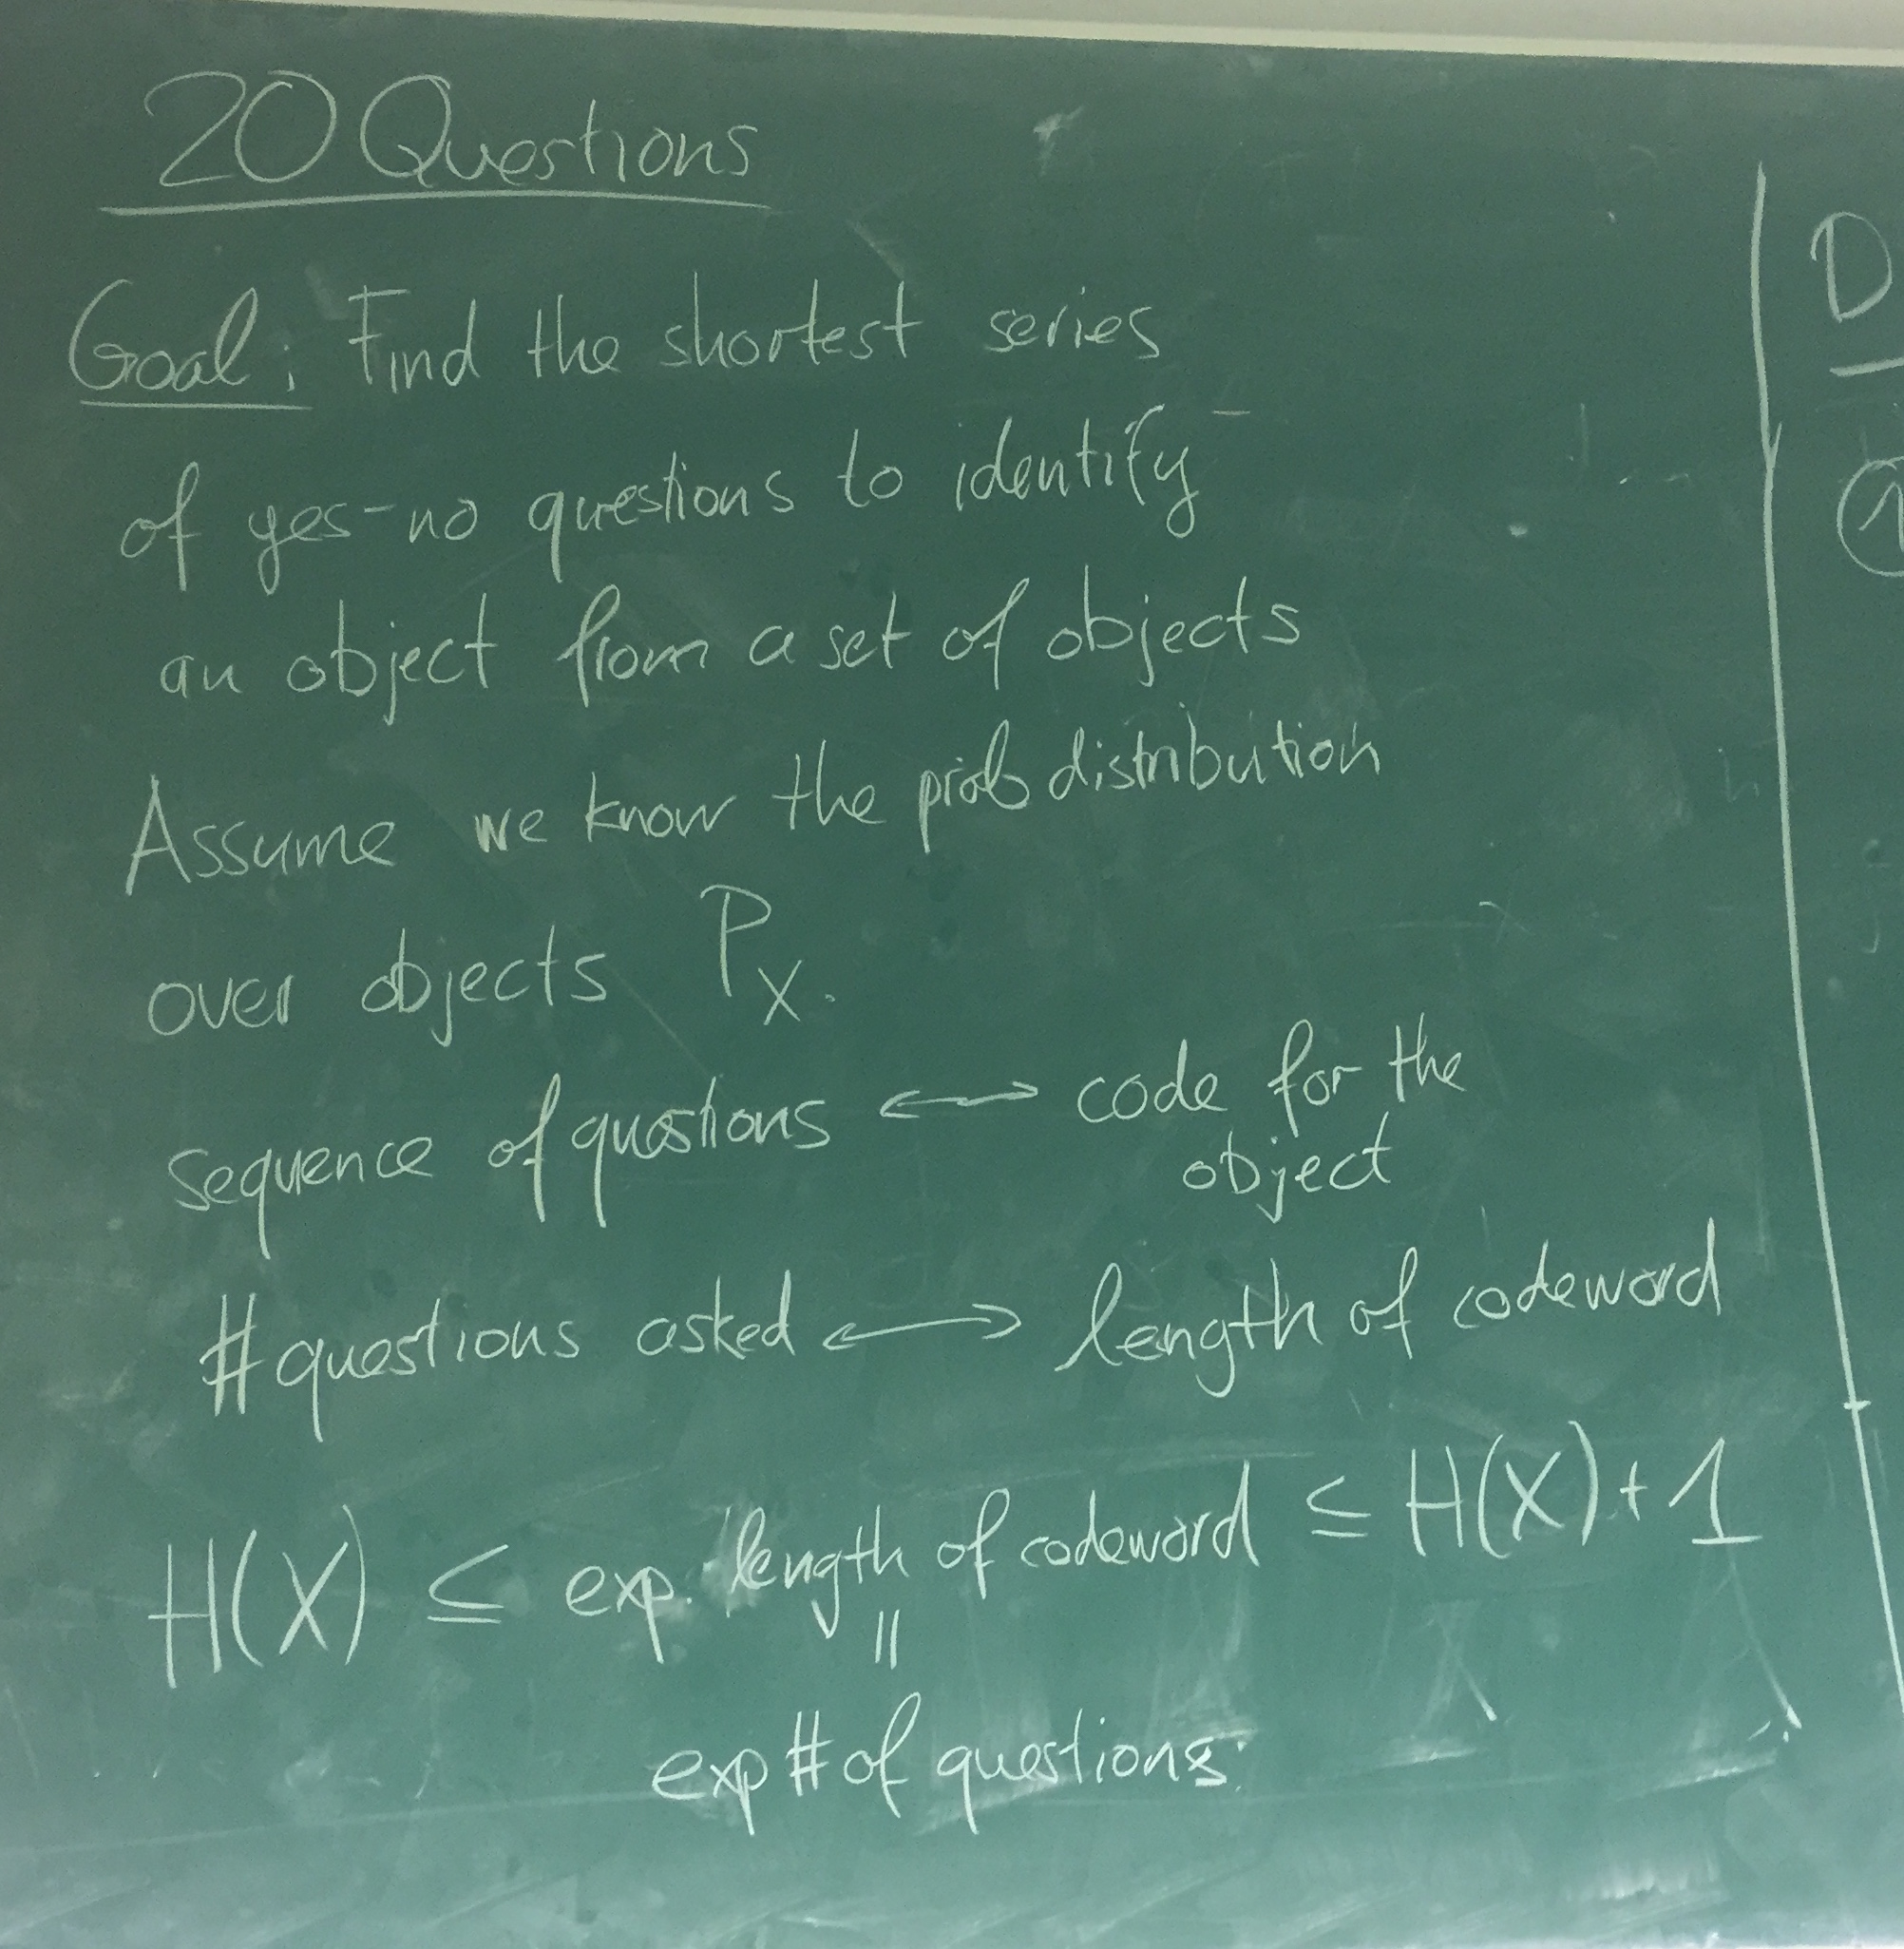 20 Questions
Goal: Find the shortest series
of yes-no questions to identify
an object from a set of objects
Assume we know the prob distribution
over objects P_X.
sequence of questions ⟷ code for the
object
# questions asked ⟷ length of codeword
H(X) ≤ exp. length of codeword ≤ H(X)+1
||
exp # of questions.
D
①